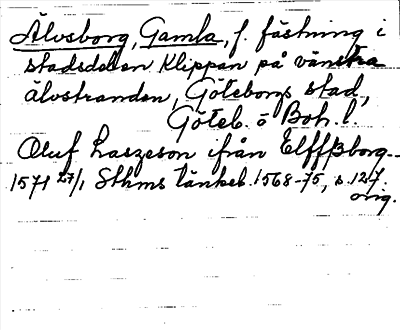 Älvsborg, Gamla, f. fästning i
stadsdelen Klippan på vänstra
älvstranden, Göteborgs stad,
Göteb. o Boh. l.
Oluf Laszeson ifrån Elffßborg
1571 27/1 Sthms tänkeb. 1568-75, s. 127.
orig.